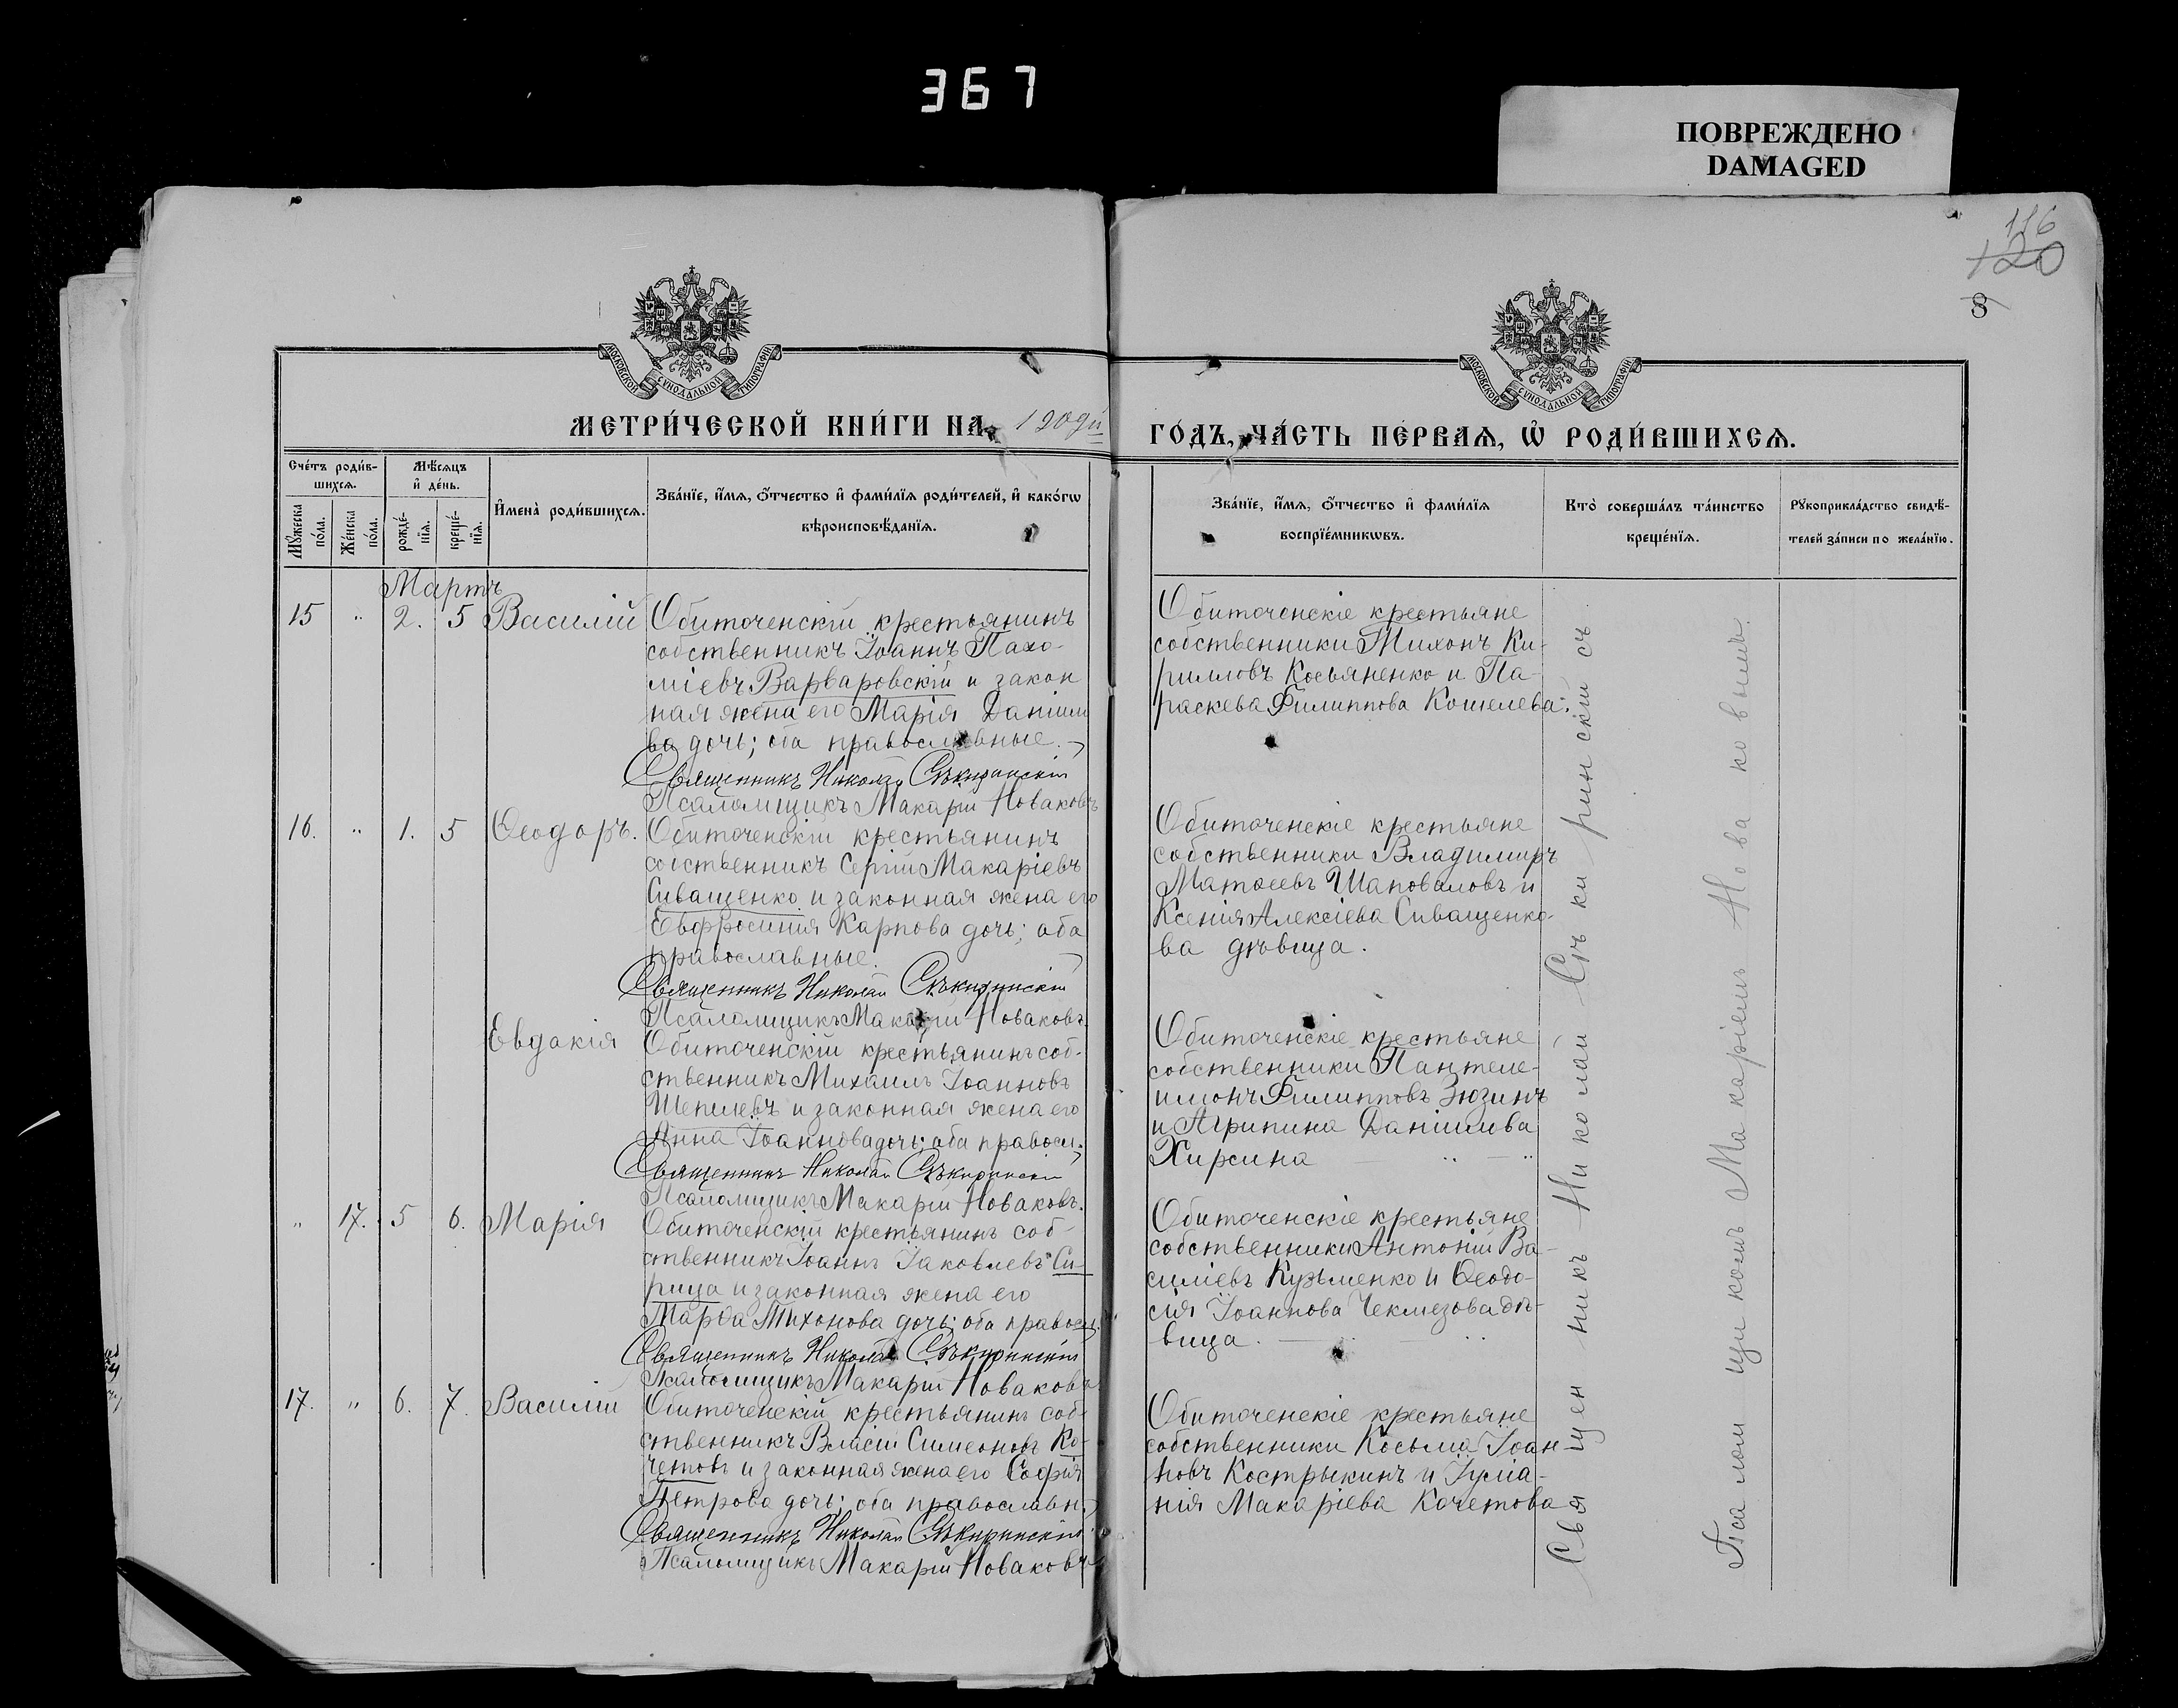 367
ПОВРЕЖДЕНО
DAMAGED
116
120
8
МОСКОВСКОЙ СѴНОДАЛЬНОЙ ТИПОГРАФІИ
МОСКОВСКОЙ СѴНОДАЛЬНОЙ ТИПОГРАФІИ
МЕТРИ́ЧЕСКОЙ КНИ́ГИ НА
ГО́ДЪ, ЧА́СТЬ ПЕ́РВАѦ, Ѡ҆ РОДИ́ВШИХСѦ.
Сче́тъ роди́в-
шихсѧ.
Мꙋ́жеска по́ла.
Же́нска по́ла.
Мѣ́сѧцъ
и҆ де́нь.
рожде́-
нїѧ.
креще́-
нїѧ.
И҆мена̀ роди́вшихсѧ.
Зва́нїе, и҆́мѧ, ѻ҆́тчество и҆ фами́лїѧ роди́телей, и҆ како́гѡ
вѣроисповѣ́данїѧ.
Зва́нїе, и҆́мѧ, ѻ҆́тчество и҆ фами́лїѧ
воспрїе́мникѡвъ.
Кто̀ соверша́лъ та́инство
креще́нїѧ.
Рꙋкоприкла́дство свидѣ́-
телей за́писи по жела́нїю.
Мартъ
15 " 2. 5 Василій
Обиточенскій крестьянинъ
собственникъ Іоаннъ Пахо-
міевъ Варваровскій и закон
ная жена его Марія Даніило
ва дочь; оба православные.
Священникъ Николай Сѣкиринскій
Псаломщикъ Макарій Новаковъ
Обиточенскіе крестьяне
собственники Тихонъ Ки-
рилловъ Косьяненко и Па-
раскева Филиппова Кошелева.
16. " 1. 5 Ѳеодоръ.
Обиточенскій крестьянинъ
собственникъ Сергій Макаріевъ
Сиващенко и законная жена его
Евфросинія Карпова дочь; оба
православные.
Священникъ Николай Сѣкиринскій
Псаломщикъ Макарій Новаковъ.
Обиточенскіе крестьяне
собственники Владимиръ
Матѳеевъ Шаповаловъ и
Ксенія Алексіева Сиващенко-
ва дѣвица.
Евдакія
Обиточенскій крестьянинъ соб-
ственникъ Михаилъ Іоанновъ
Шепелевъ и законная жена его
Анна Іоаннова дочь; оба правосл.
Священникъ Николай Сѣкиринскій
Псаломщикъ Макарій Новаковъ.
Обиточенскіе крестьяне
собственники Пантеле-
имонъ Филипповъ Зюзинъ
и Агрипина Даніилова
Хирсина
" 17. 5 6. Марія
Обиточенскій крестьянинъ соб-
ственникъ Іоаннъ Іаковлевъ Си-
рица и законная жена его
Марѳа Тихонова дочь; оба правосл.
Священникъ Николай Сѣкиринскій
Псаломщикъ Макарій Новаковъ
Обиточенскіе крестьяне
собственники Антоній Ва-
силіевъ Кузьменко и Ѳеодо-
сія Іоаннова Чекмезова дѣ-
вица.
17. " 6. 7. Василій
Обиточенскій крестьянинъ соб-
ственникъ Власій Симеоновъ Ко-
четовъ и законная жена его Софія
Петрова дочь; оба православн.
Священникъ Николай Сѣкиринскій
Псаломщикъ Макарій Новаковъ
Обиточенскіе крестьяне
собственники Косьма Іоан-
новъ Кострыкинъ и Іуліа-
нія Макаріева Кочетова
Священникъ Николай Сѣкиринскій съ
Псаломщикомъ Макаріемъ Новаковымъ.